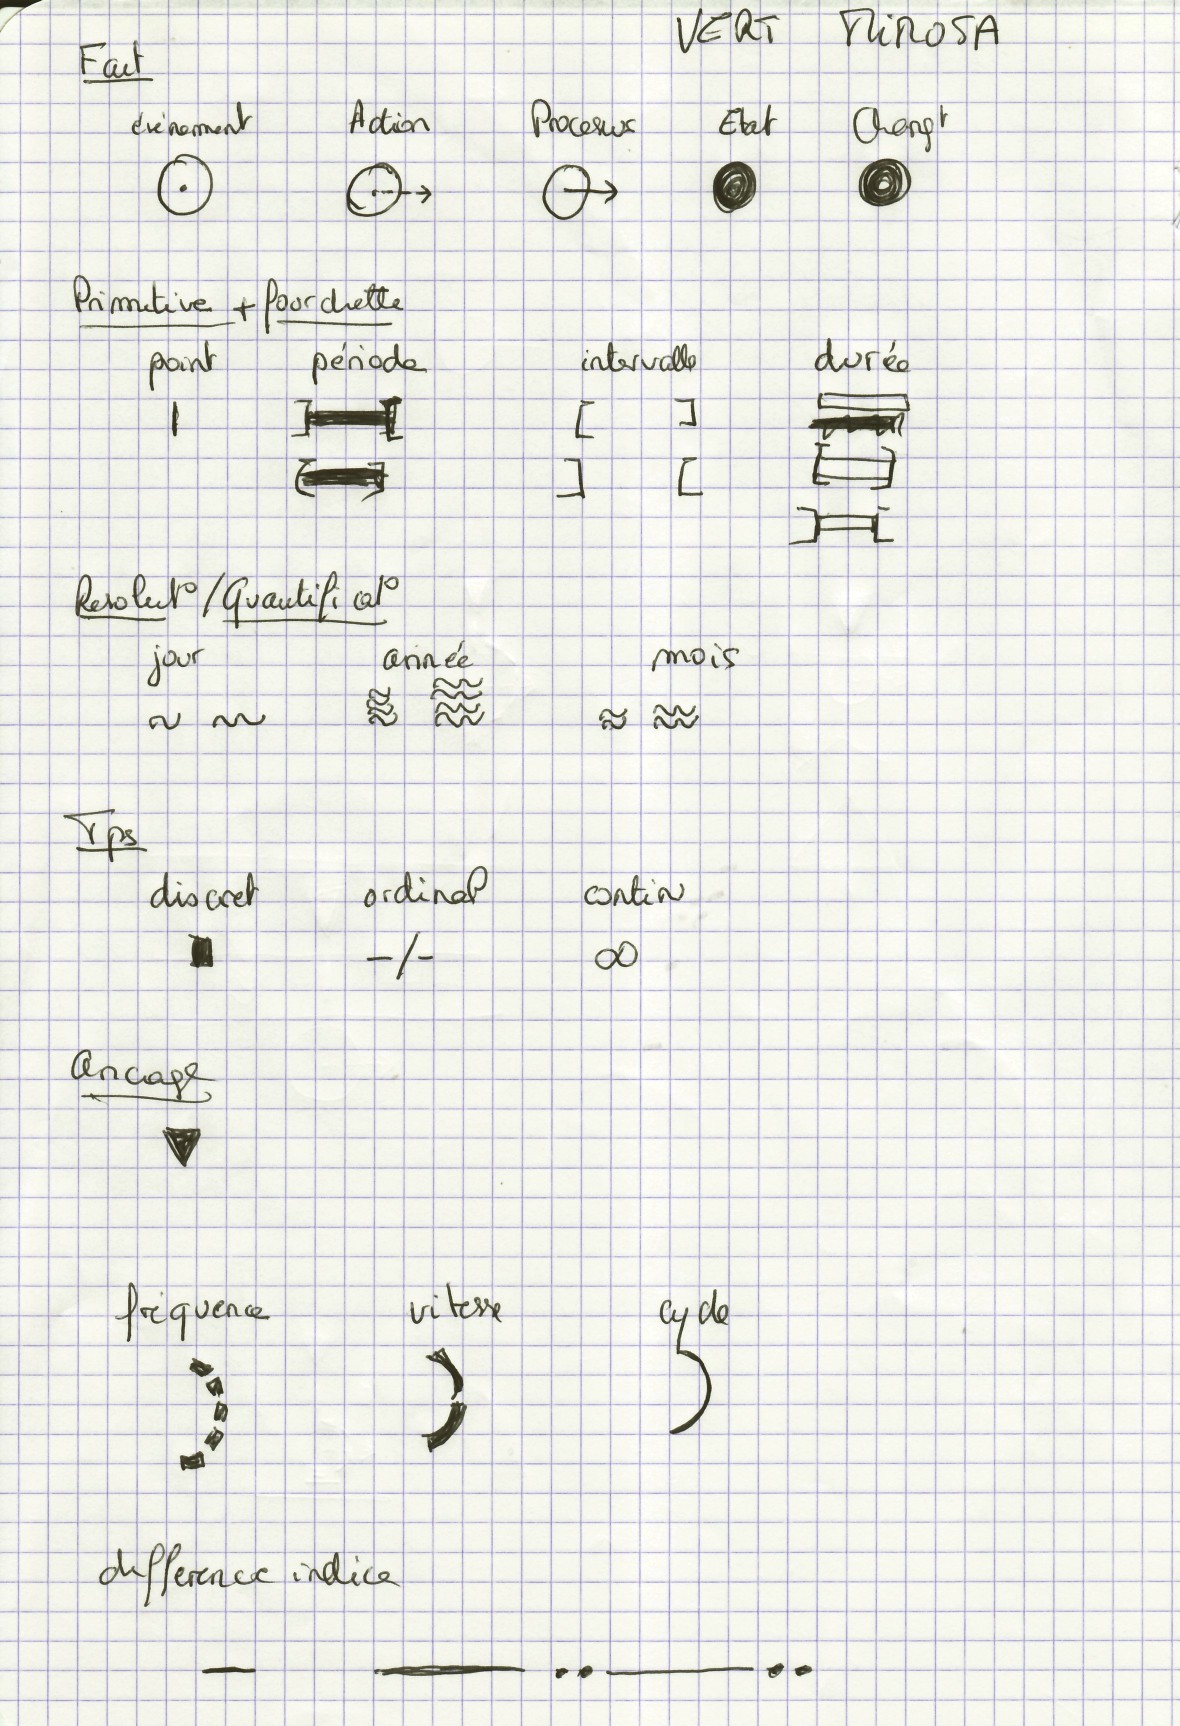 VERT MIMOSA
Fait
événement Action Processus Etat Changt
Primitive + fourchette
point période intervalle durée
[ ]
] [
Resolut° / Quantificat°
jour année mois
Tps
discret ordinal continu
-/- ∞
Ancrage
fréquence vitesse cycle
difference indice